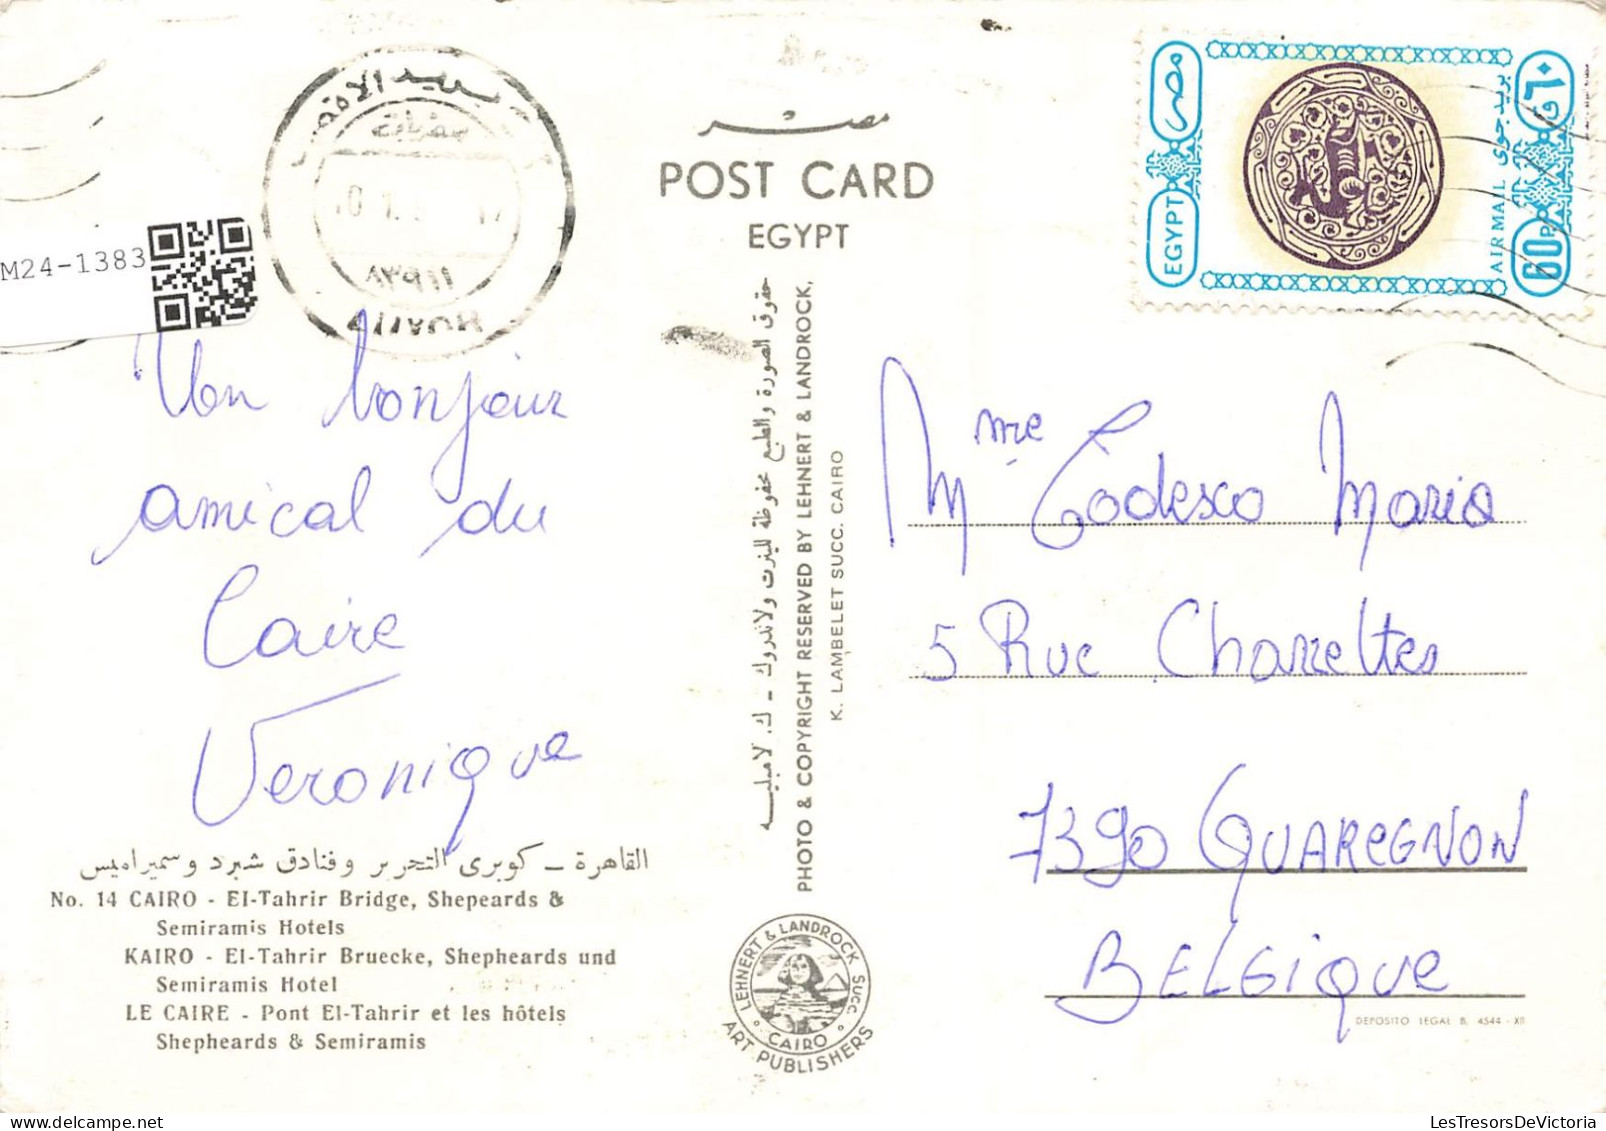 M24-1383
بريد الأقصر
مصر
POST CARD
EGYPT
مصر
EGYPT
بريد جوى
AIR MAIL
٦٠ ق
60 P
Un bonjour
amical du
Caire
Veronique
حقوق الصورة والطبع محفوظة للينرت ولاندروك - ك. لامبليه
PHOTO & COPYRIGHT RESERVED BY LEHNERT & LANDROCK,
K. LAMBELET SUCC. CAIRO
Mme Todesco Maria
5 Rue Charrettes
7390 QUAREGNON
BELGIQUE
القاهرة – كوبرى التحرير وفنادق شبرد وسميراميس
No. 14 CAIRO - El-Tahrir Bridge, Shepeards &
Semiramis Hotels
KAIRO - El-Tahrir Bruecke, Shepheards und
Semiramis Hotel
LE CAIRE - Pont El-Tahrir et les hôtels
Shepheards & Semiramis
LEHNERT & LANDROCK SUCC.
CAIRO
ART PUBLISHERS
DEPOSITO LEGAL B. 4544 - XII
LesTresorsDeVictoria.com